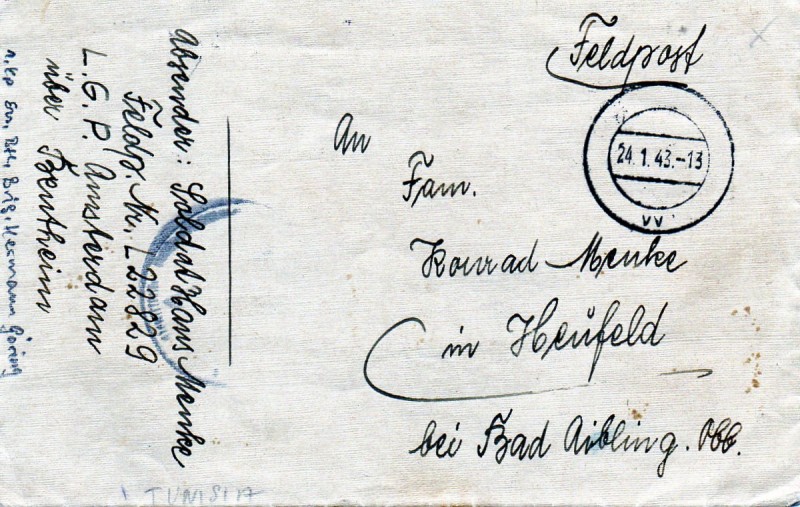 Feldpost
24.1.43.-13
vv
An
Fam.
Konrad Menke
in Heufeld
bei Bad Aibling. Obb.
Absender: Soldat Hans Menke
Feldp. Nr. L 22829
L. G. P. Amsterdam
über Bentheim
Brig. Hermann Göring
TUNISIA